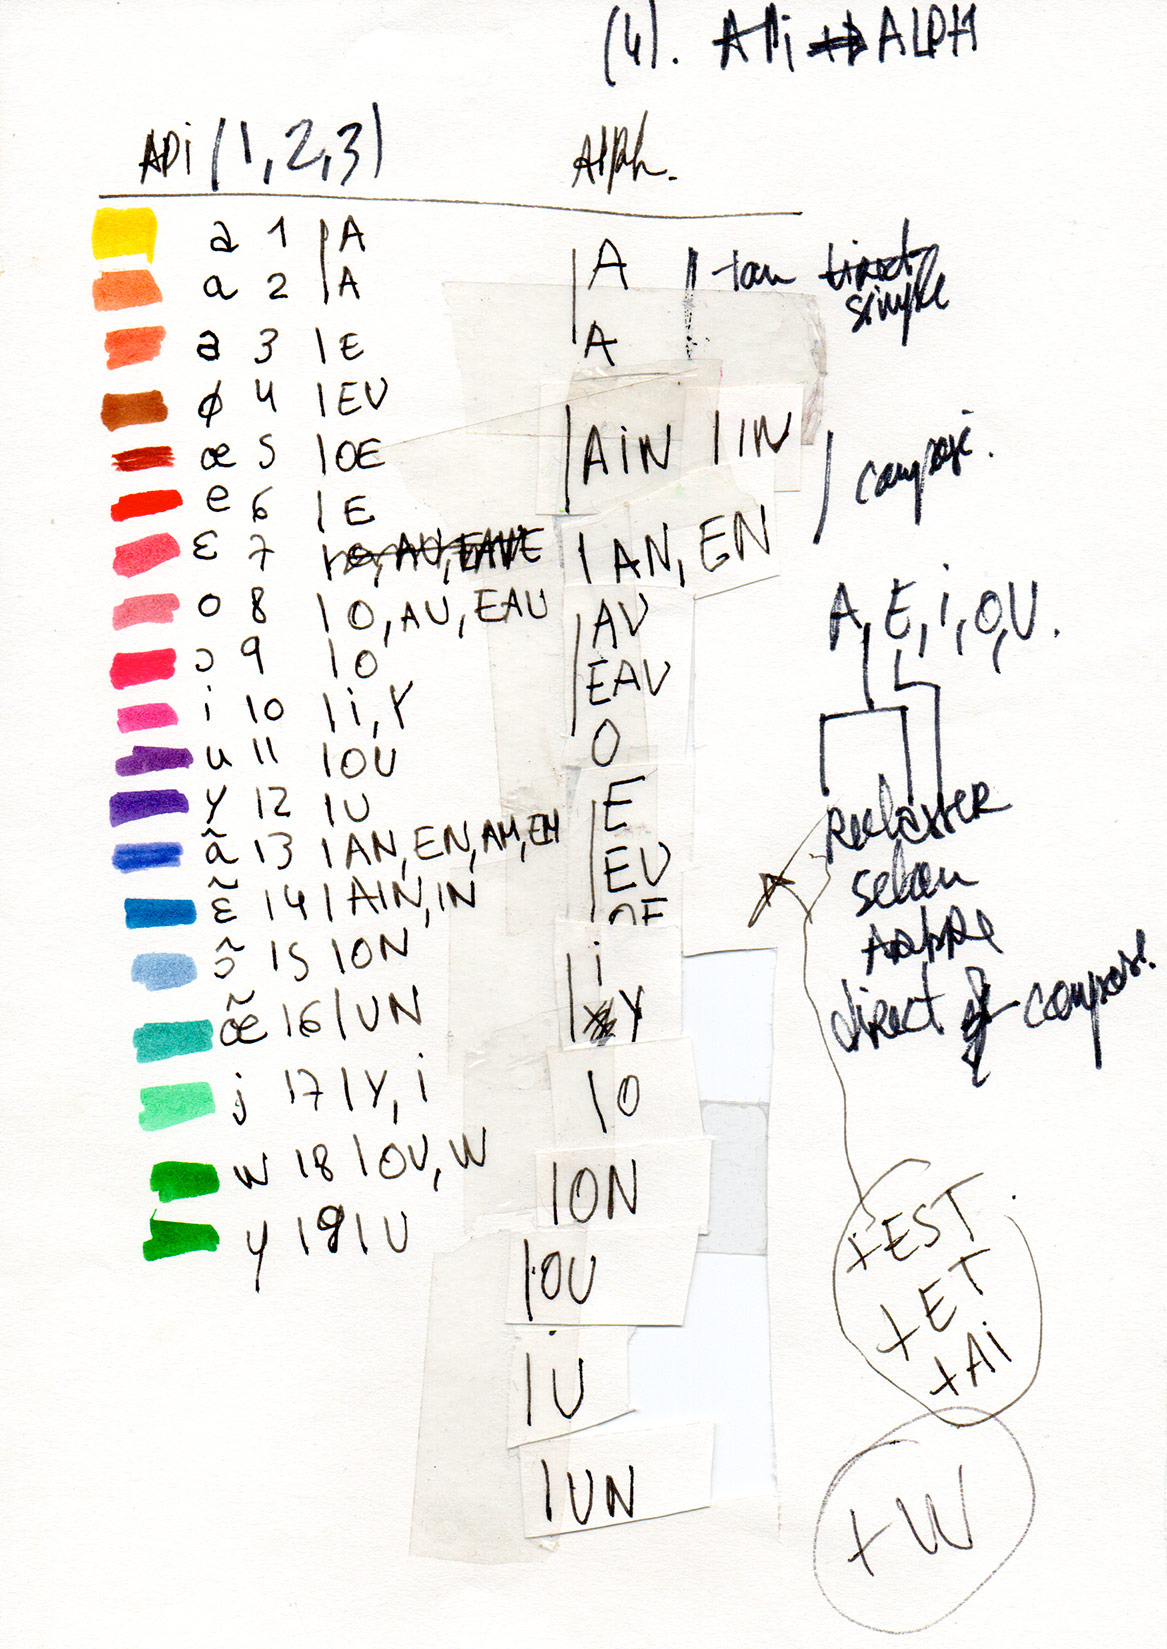 (4). API ALPH
API (1,2,3)
Alph.
a 1 | A
ɑ 2 | A
ə 3 | E
ø 4 | EU
œ 5 | OE
e 6 | E
ɛ 7 | O, AU, EAU
o 8 | O, AU, EAU
ɔ 9 | O
i 10 | i, Y
u 11 | OU
y 12 | U
ɑ̃ 13 | AN, EN, AM, EM
ɛ̃ 14 | AIN, IN
ɔ̃ 15 | ON
œ̃ 16 | UN
j 17 | Y, i
w 18 | OU, W
ɥ 19 | U
| A
A
| AiN | IN
| AN, EN
| AU
EAU
O
| E
EU
OE
| i
| Y
| O
| ON
| OU
| U
| UN
simple
A, E, i, O, U.
Reclasser
selon
direct
+EST
+ET
+Ai
+W